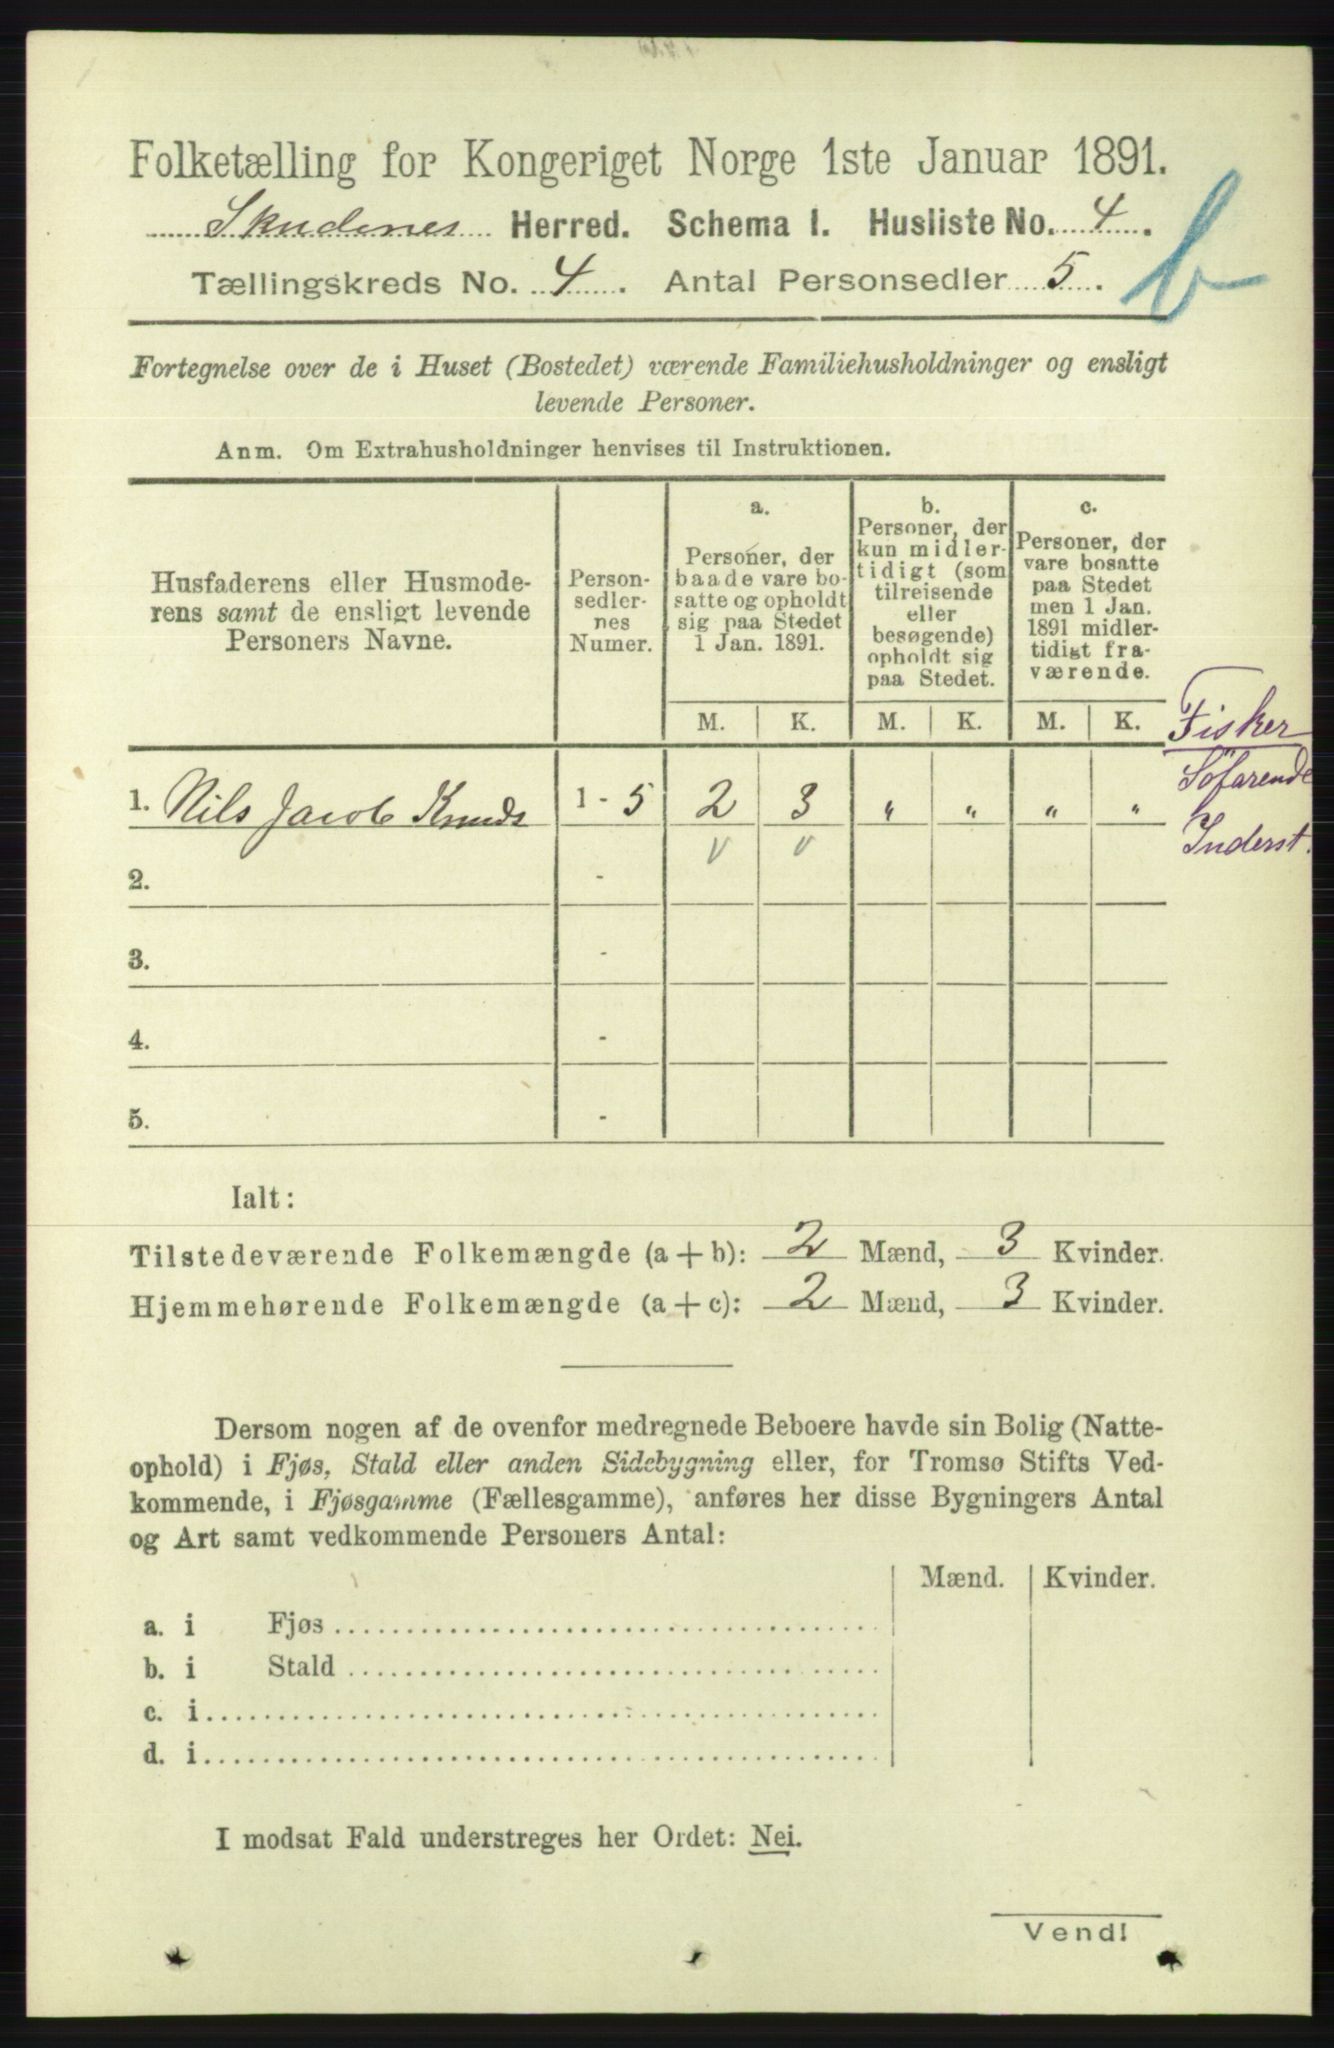 Folketælling for Kongeriget Norge 1ste Januar 1891.
Skudenes Herred. Schema I. Husliste No. 4.
Tællingskreds No. 4. Antal Personsedler 5.
b
Fortegnelse over de i Huset (Bostedet) værende Familiehusholdninger og ensligt
levende Personer.
Anm. Om Extrahusholdninger henvises til Instruktionen.
Husfaderens eller Husmode-
rens samt de ensligt levende
Personers Navne.
Person-
sedler-
nes
Numer.
a.
Personer, der
baade vare bo-
satte og opholdt
sig paa Stedet
1 Jan. 1891.
b.
Personer, der
kun midler-
tidigt (som
tilreisende
eller
besøgende)
opholdt sig
paa Stedet.
c.
Personer, der
vare bosatte
paa Stedet
men 1 Jan.
1891 midler-
tidigt fra-
værende.
M. K. M. K. M. K.
Fisker
Söfarende
Inderst.
1. Nils Jacob Knuds 1 - 5 2 3 " " " "
v v
2. -
3. -
4. -
5. -
Ialt:
Tilstedeværende Folkemængde (a + b): 2 Mænd, 3 Kvinder.
Hjemmehørende Folkemængde (a + c): 2 Mænd, 3 Kvinder.
Dersom nogen af de ovenfor medregnede Beboere havde sin Bolig (Natte-
ophold) i Fjøs, Stald eller anden Sidebygning eller, for Tromsø Stifts Ved-
kommende, i Fjøsgamme (Fællesgamme), anføres her disse Bygningers Antal
og Art samt vedkommende Personers Antal:
Mænd. Kvinder.
a. i Fjøs
b. i Stald
c. i
d. i
I modsat Fald understreges her Ordet: Nei.
Vend!